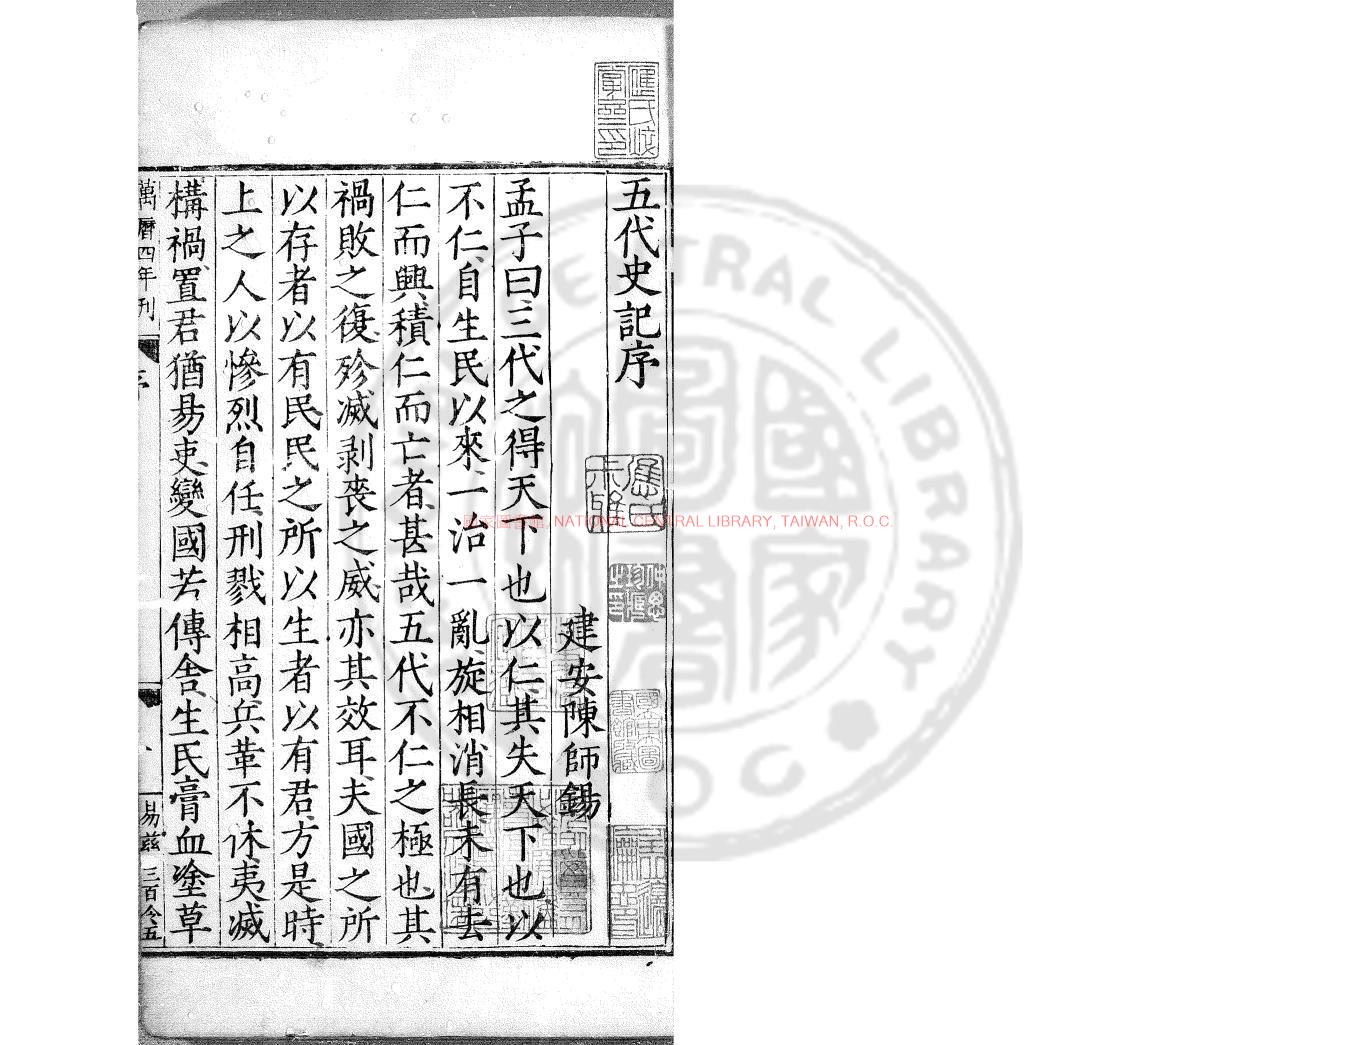 五代史記序
建安陳師錫
孟子曰三代之得天下也以仁其失天下也以
不仁自生民以來一治一亂旋相消長未有去
仁而興積仁而亡者甚哉五代不仁之極也其
禍敗之復殄滅剥喪之威亦其效耳夫國之所
以存者以有民民之所以生者以有君方是時
上之人以慘烈自任刑戮相高兵革不休夷滅
構禍置君猶易吏變國若傳舍生民膏血塗草
萬曆四年刊
易兹 三百令五
國家圖書館, NATIONAL CENTRAL LIBRARY, TAIWAN, R.O.C.